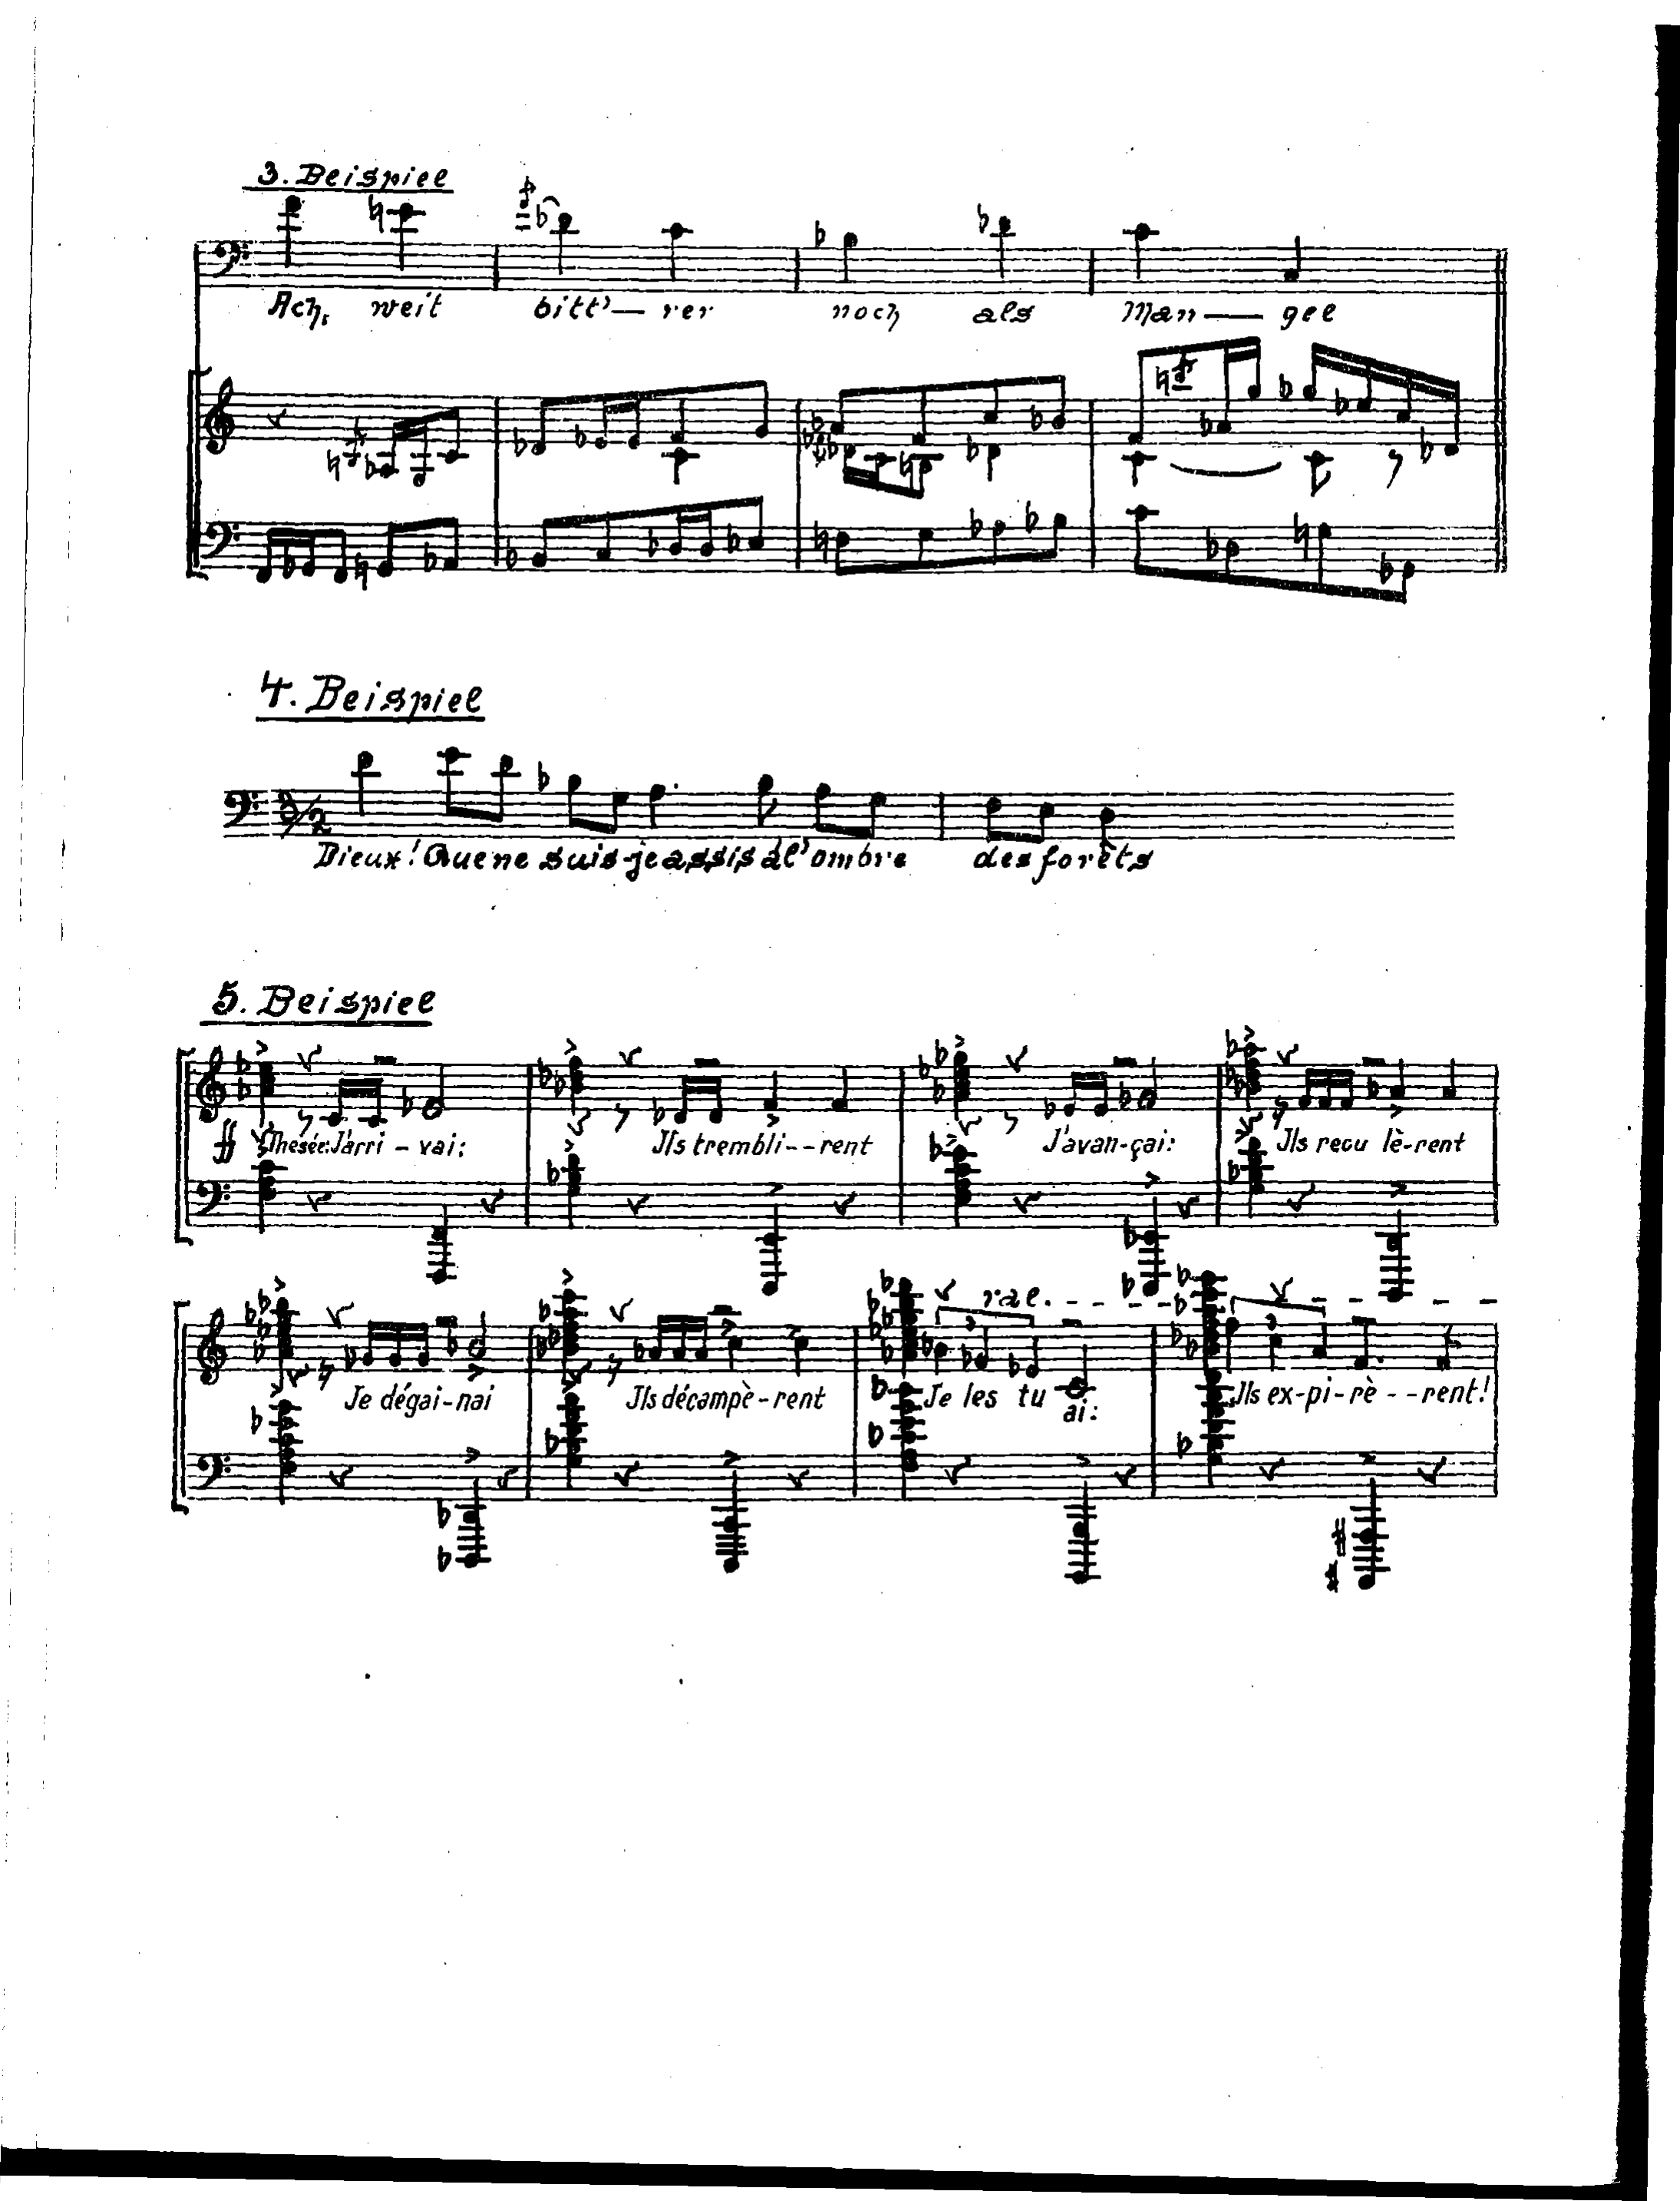 3. Beispiel
Ach, weit bitt'— rer noch als Man — gel
4. Beispiel
3/2
Dieux! Que ne suis-je assis à l'ombre des forêts
5. Beispiel
ff Thesée: J'arri - vai: Ils trembli - - rent J'avan-çai: Ils recu lè-rent
ral. - - - - - - - -
3 3
Je dégai-nai Ils décampè-rent Je les tu ai: Ils ex-pi-rè - - rent!